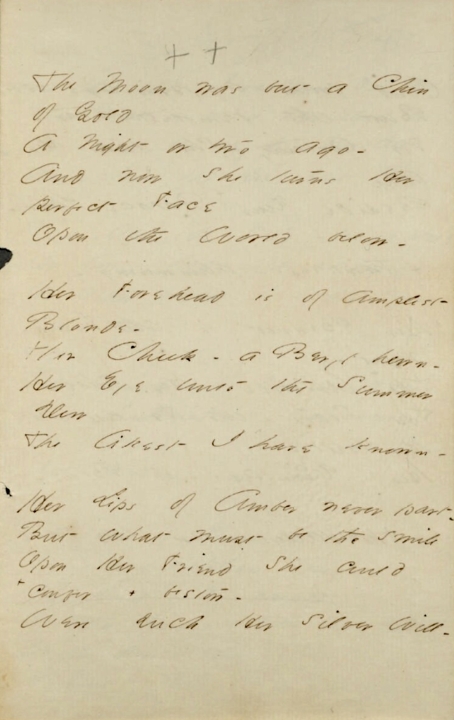 + +
The Moon was but a Chin
of Gold
A Night or two ago -
And now she turns Her
perfect Face
Opon the World below -
Her Forehead is of Amplest
Blonde -
Her Cheek - a Beryl hewn -
Her Eye unto the Summer
Dew
The Likest I have known -
Her Lips of Amber never part -
But what must be the smile
Opon Her Friend she could
+ confer + bestow -
Were such Her Silver Will -